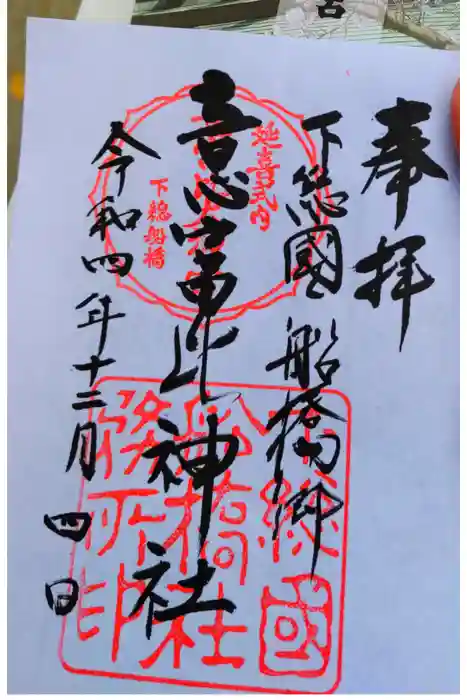 奉拝
下総國 船橋郷
意富比神社
令和四年十二月四日
延喜式内
下総船橋